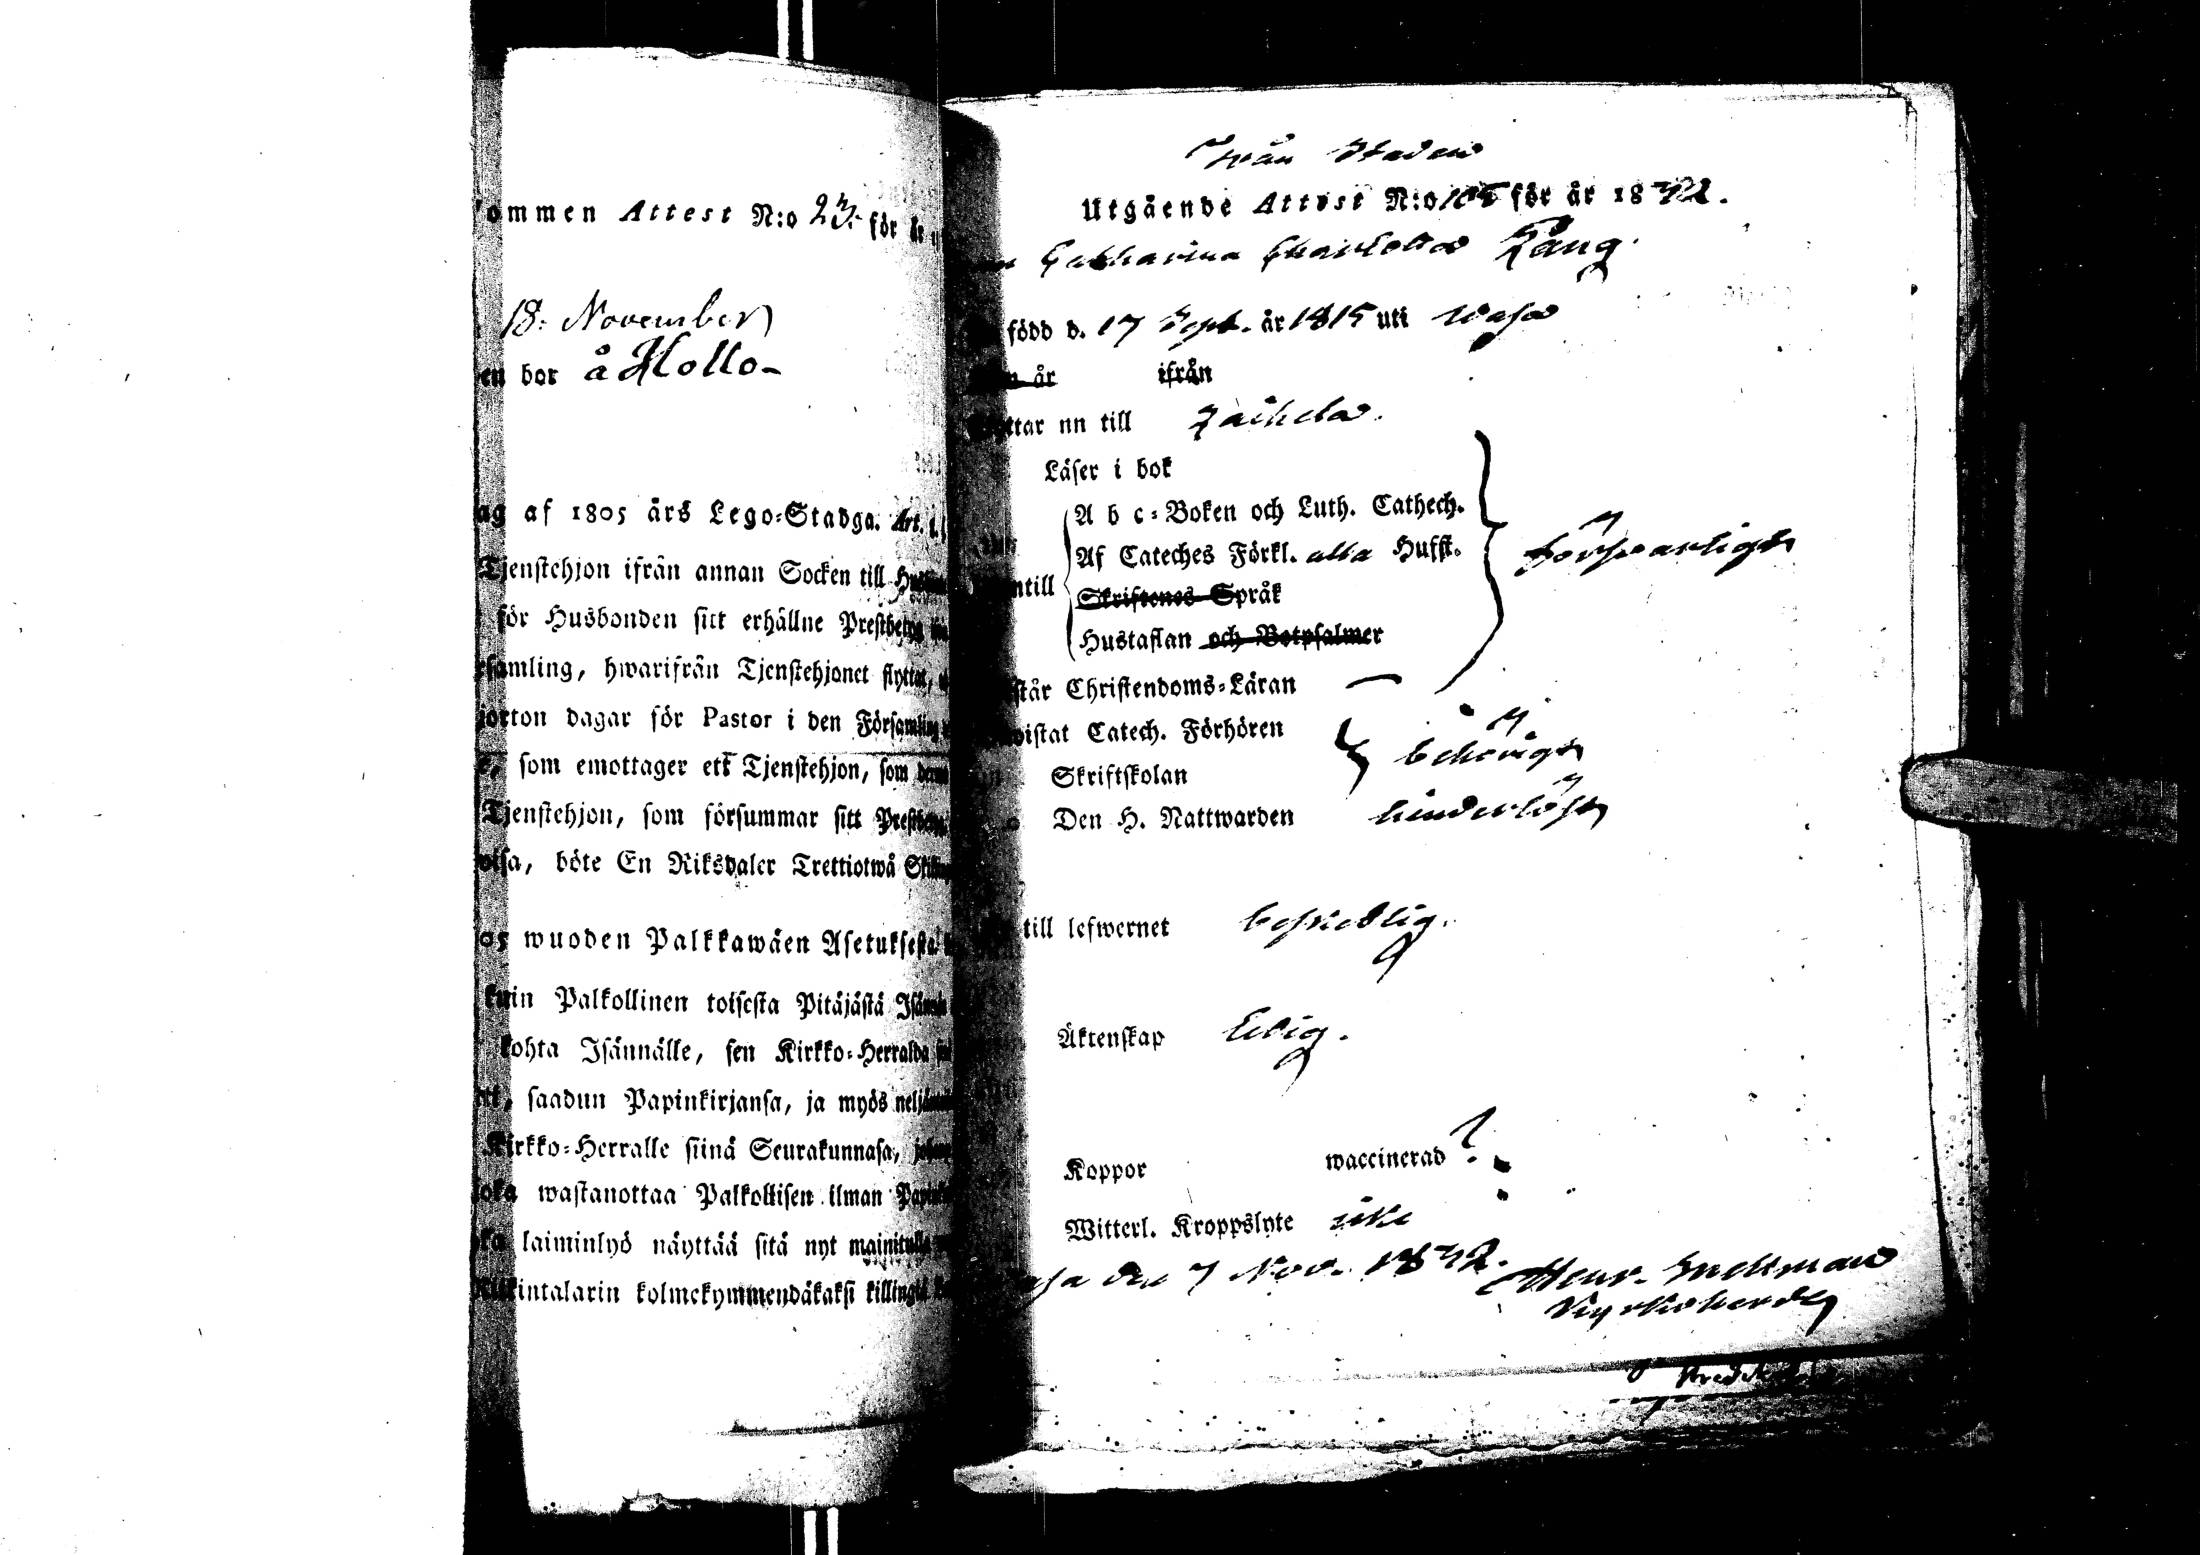 ommen Attest N:o 23. för år
18. November
en bor å Hollo-
ag af 1805 års Lego-Stadga. Art. 1.
Tjenstehjon ifrån annan Socken till
för Husbonden sitt erhållne Prestbetyg
samling, hwarifrån Tjenstehjonet flyttat,
jorton dagar för Pastor i den Församling
som emottager ett Tjenstehjon, som
Tjenstehjon, som försummar sitt
wisa, böte En Riksdaler Trettiotwå
05 wuoden Palkkawäen Asetuksesta
kuin Palkollinen toisesta Pitäjästä
kohta Isännälle, sen Kirkko-Herralda
saadun Papinkirjansa, ja myös
Kirkko-Herralle siinä Seurakunnasa,
joka wastanottaa Palkollisen ilman
laiminlyö näyttää sitä nyt
kintalarin kolmekymmendäkaksi killingiä
Från Staden
Utgående Attest N:o 105 för år 1832.
Catharina Charlotta Lång.
född d. 17 Sept. år 1815 uti Wasa
år ifrån
ttar nu till Laihela.
Läser i bok
A b c-Boken och Luth. Cathech.
Af Cateches Förkl. alla Hufst.
försvarligt
ntill
Skriftenes Språk
Hustaflan och Botpsalmer
står Christendoms-Läran
wistat Catech. Förhören
behörigt
Skriftskolan
Den H. Nattwarden hinderlöst
till lefwernet beskedlig.
Äktenskap Ledig.
Koppor waccinerad ?
Witterl. Kroppslyte icke
asa den 7 Nov. 1832. Henr. Snellman
Kyrkoherde